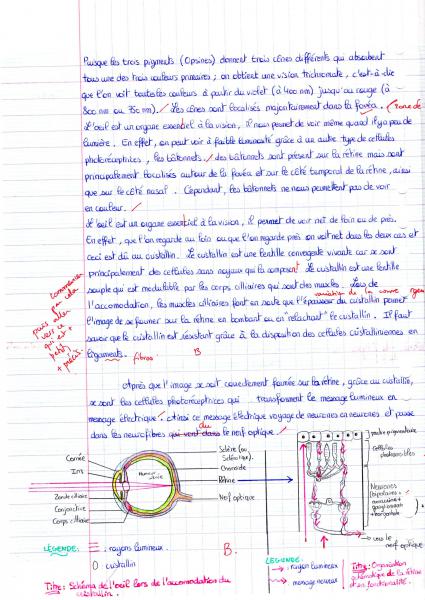 Puisque les trois pigments (Opsines) donnent trois cônes différents qui absorbent
tous une des trois couleurs primaires ; on obtient une vision trichromate, c'est-à-dire
que l'on voit toutes les couleurs à partir du violet (à 400 nm) jusqu'au rouge (à
800 nm ou 750 nm). Les cônes sont localisés majoritairement dans la fovéa.
L'oeil est un organe essentiel à la vision, il nous permet de voir même quand il y a peu de
lumière. En effet, on peut voir à faible luminosité grâce à un autre type de cellules
photoréceptrices, les bâtonnets, des bâtonnets sont présent sur la rétine mais sont
principalement localisés autour de la fovéa et sur le côté temporal de la rétine, ainsi
que sur le côté nasal. Cependant, les bâtonnets ne nous permettent pas de voir
en couleur.
L'oeil est un organe essentiel à la vision, il permet de voir net de loin ou de près.
En effet, que l'on regarde au loin ou que l'on regarde près on voit net dans les deux cas et
ceci est dû au cristallin. Le cristallin est une lentille convergente vivante car se sont
principalement des cellules sans noyaux qui la composent. Le cristallin est une lentille
souple qui est modulable par les corps ciliaires qui sont des muscles. Lors de
l'accomodation, les muscles ciliaires font en sorte que l'épaisseur du cristallin permet
l'image de se former sur la rétine en bombant ou en "relachant" le cristallin. Il faut
savoir que le cristallin est résistant grâce à la disposition des cellules cristalliniennes en
ligaments. fibres
B
commencer
par cela
puis aller
vers ce
qui est +
petit,
+ précis.
Après que l'image se soit correctement formée sur la rétine, grâce au cristallin,
se sont les cellules photoréceptrices qui transforment le message lumineux en
message électrique. Ainsi ce message électrique voyage de neurones en neurones et passe
dans les neurofibres qui vont dans le nerf optique.
du
Cornée
Iris
Zonule ciliaire
Conjonctive
Corps ciliaire
Humeur vitrée
Sclère (ou Sclérotique).
Choroïde
Rétine
Nerf optique
pigmentaire
Cellules
Neurones
(bipolaires +
vers le
nerf optique
LÉGENDE:
: rayon lumineux
0 cristallin
B.
Titre: Schéma de l'oeil lors de l'accomodation du
cristallin.
LEGENDE:
: rayon lumineux
: message nerveux
Titre: Organisation
schématique de la rétine
et son fonctionnalité.